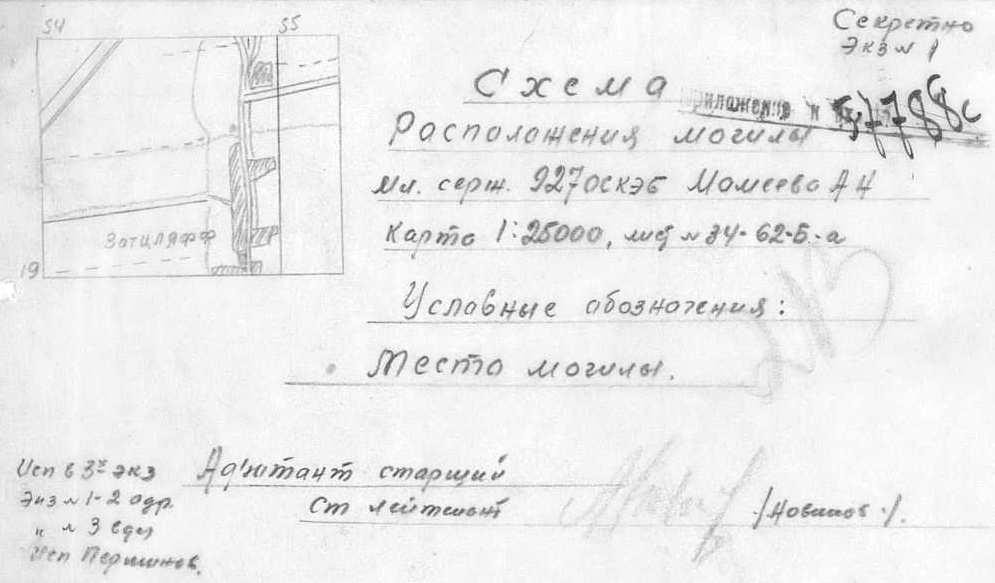 Секретно
Экз № 1
54 55
Схема
Приложение к
57788с
Расположения могилы
мл. серж. 927 оскэб Момеева А Н
Карта 1:25000, лист № 34-62-Б-а
Затцляфф
19
Условные обозначения:
Место могилы.
Исп в 3х экз
Экз № 1-2 адр.
" № 3 в дел
Исп Першинов.
Адъютант старший
ст лейтенант /Новиков/.